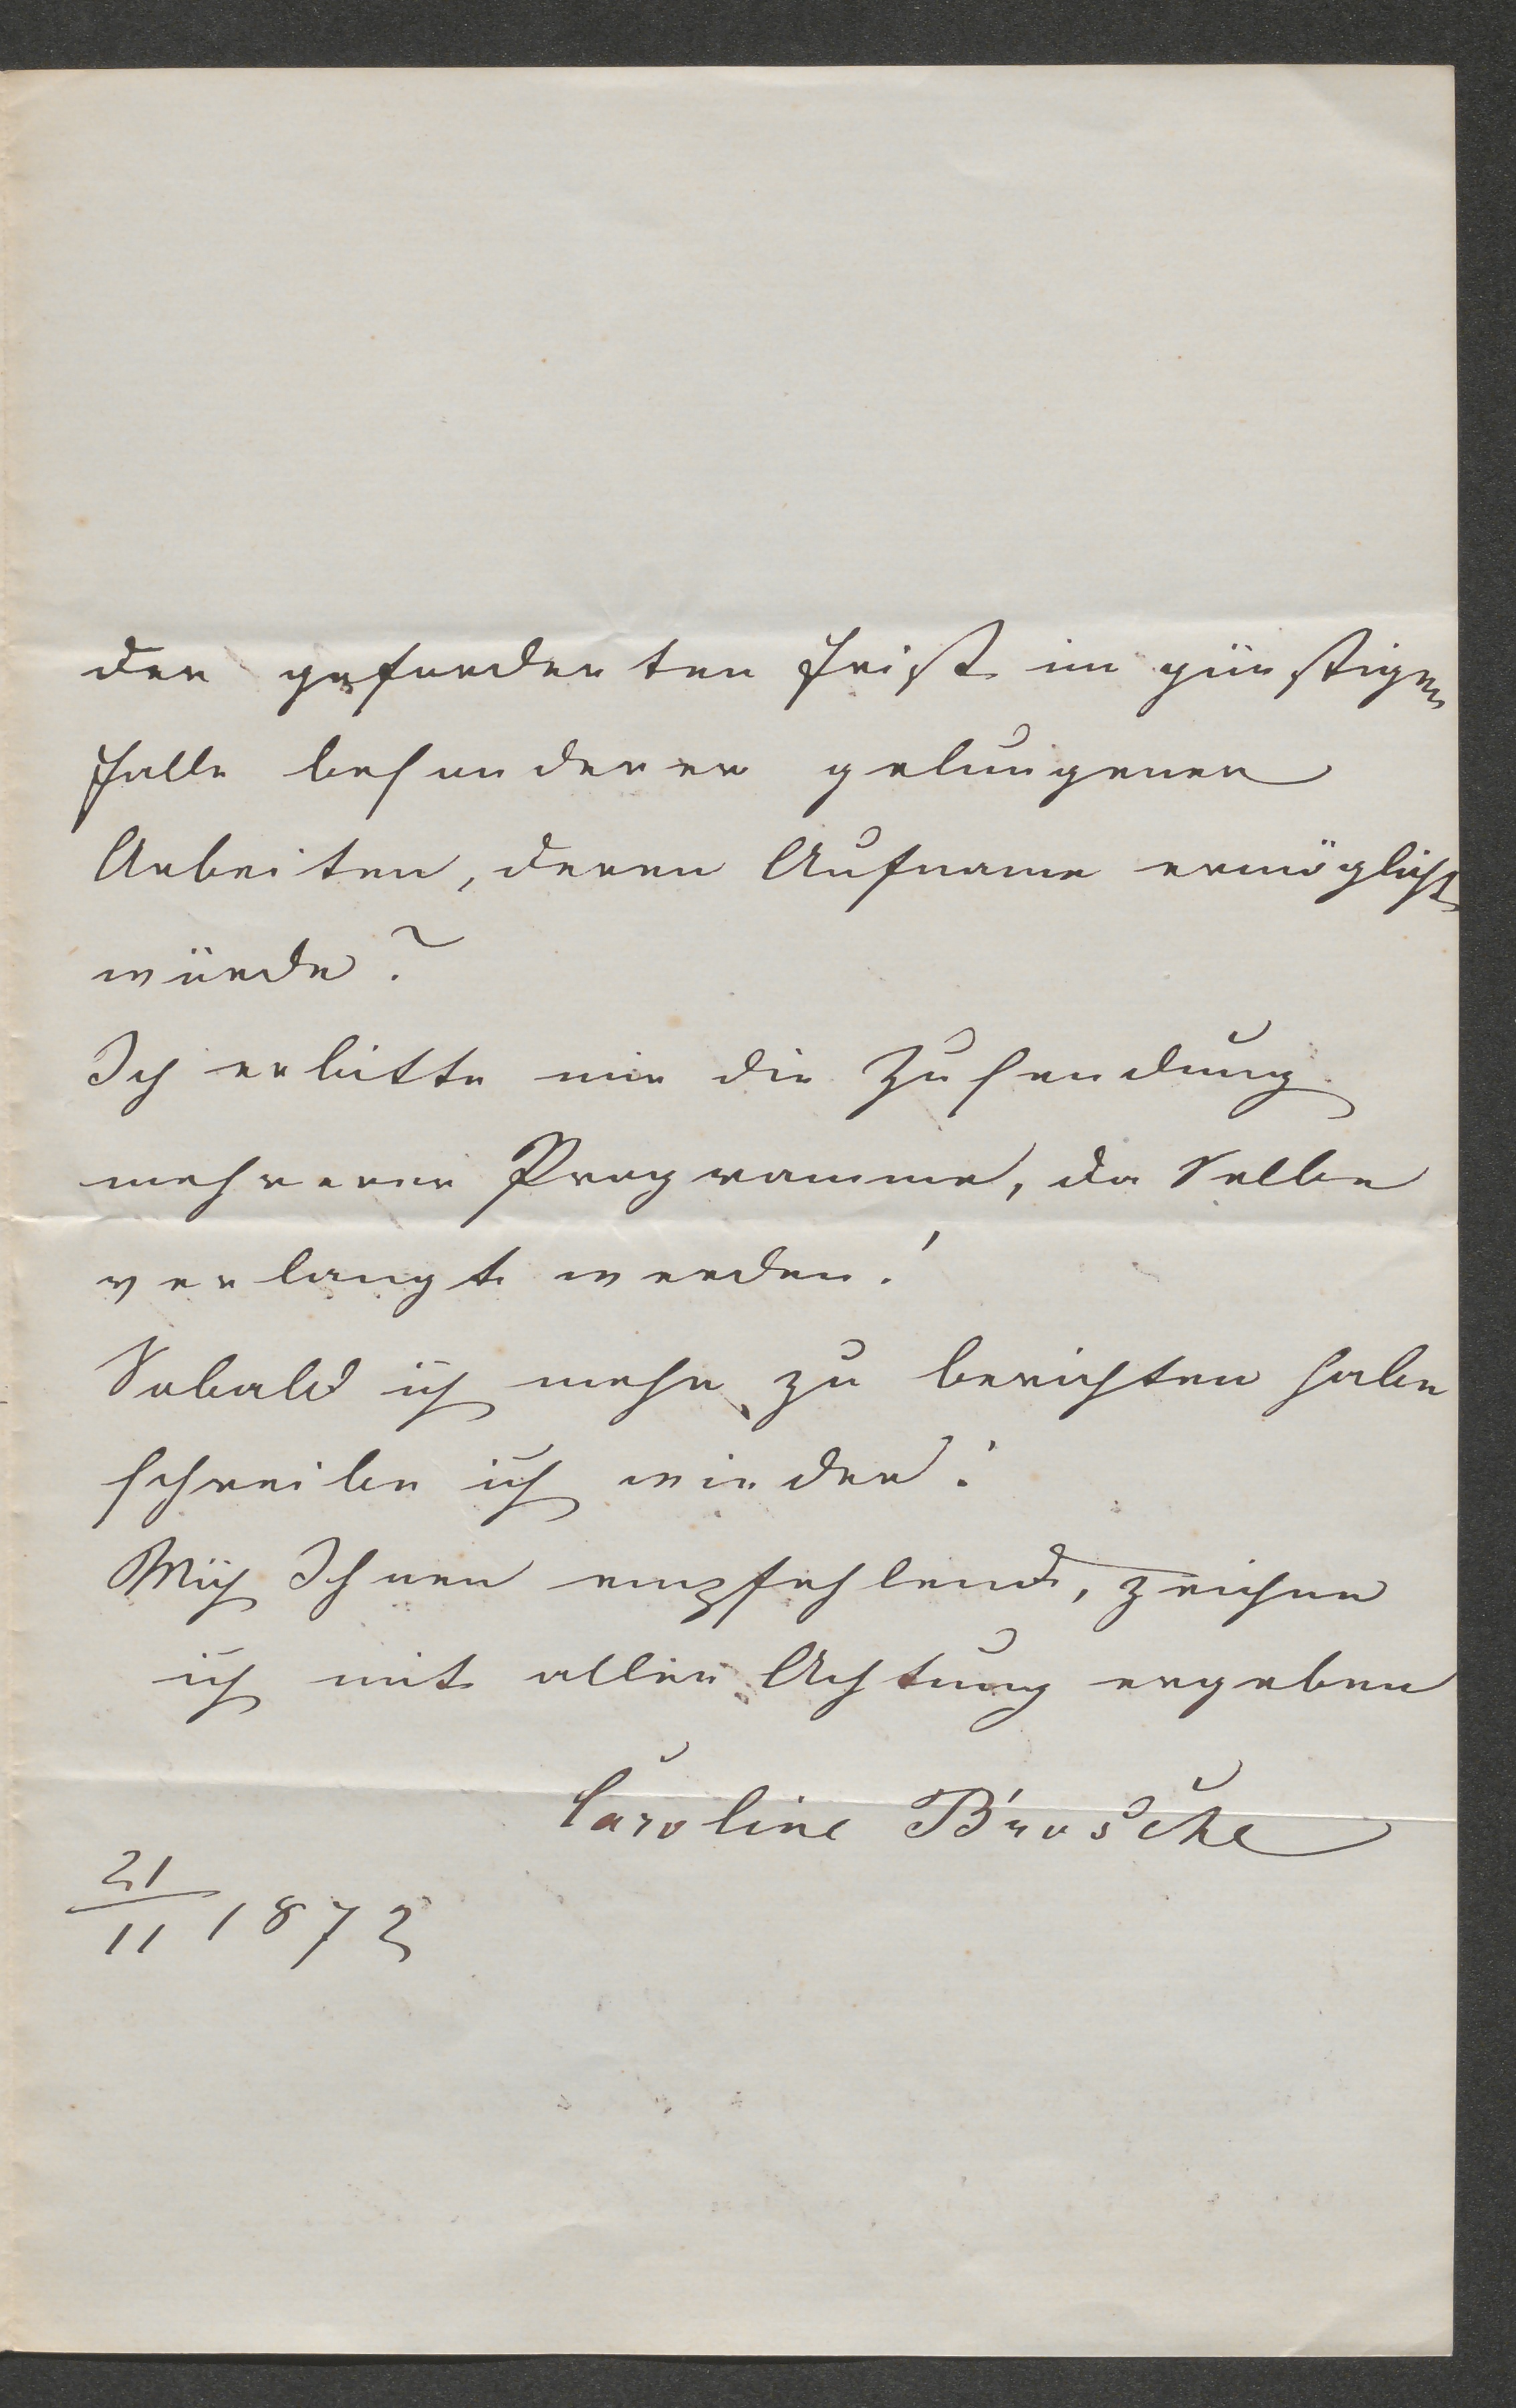 der geforderten Frist im günstigen
Falle besonderer gelungener
Arbeiten, deren Aufname ermöglicht
würde?
Ich erbitte mir die Zusendung
mehrerer Programme, da Selbe
verlangt werden!
Sobald ich mehr zu berichten habe
schreibe ich wieder!
Mich Ihnen empfehlend, zeichne
ich mit aller Achtung ergeben
Caroline Brosche
21/11 1872